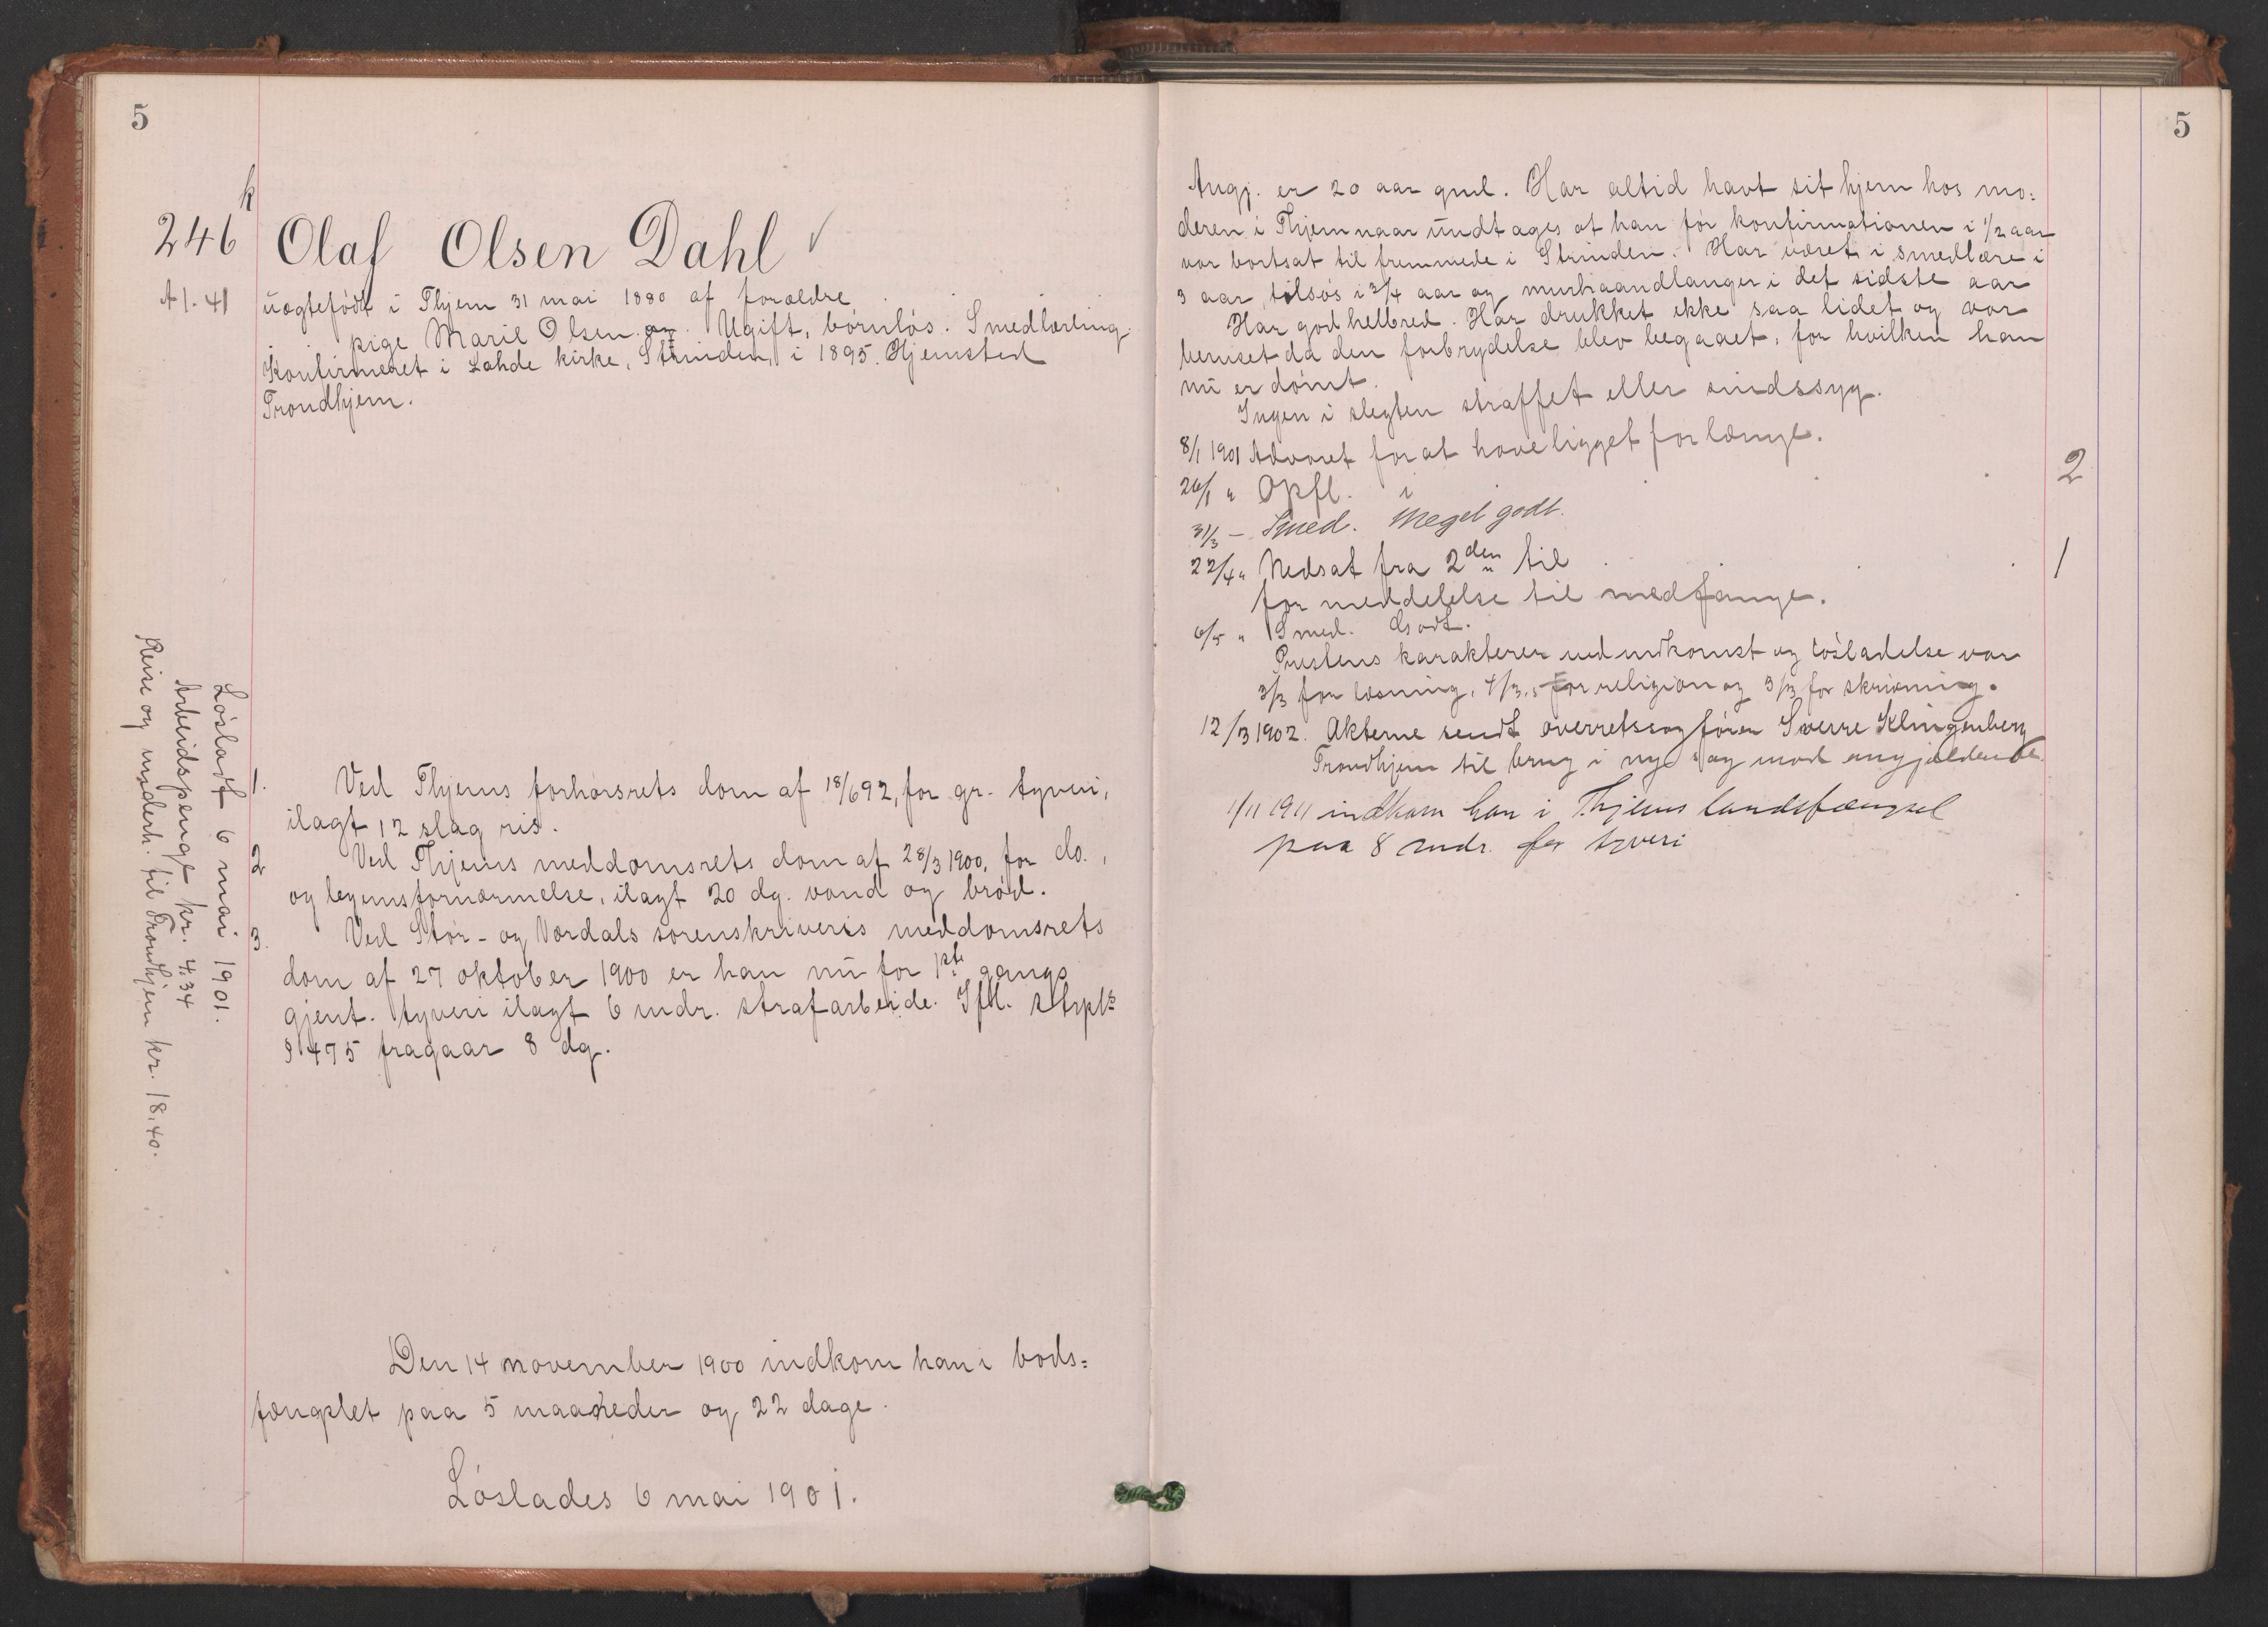 5
k
246 Olaf Olsen Dahl ✓
A 1. 41
uægtefødt i Thjem 31 mai 1880 af forældre
pige Marie Olsen og. Ugift, børnløs. Smedlærling.
Konfirmeret i Lahde kirke, Strinden, i 1895. Hjemsted
Trondhjem.
1. Ved Thjems forhørsrets dom af 18/6 92, for gr. tyveri,
ilagt 12 slag ris.
2. Ved Thjems meddomsrets dom af 28/3 1900, for do.,
og legemsfornærmelse, ilagt 20 dg. vand og brød.
3. Ved Stør- og Værdals sorenskriveris meddomsrets
dom af 27 oktober 1900 er han nu for 1ste gangs
gjent. tyveri ilagt 6 mdr. strafarbeide. Ifl. strpl.
§ 475 fragaar 8 dg.
Den 14 november 1900 indkom han i bods=
fængslet paa 5 maaneder og 22 dage.
Løslades 6 mai 1901.
Løsladt 6 mai 1901.
Arbeidspenge kr. 4.34
Reise og underh. til Trondhjem kr. 18.40.
5
Angj. er 20 aar gml. Har altid havt sit hjem hos mo=
deren i Thjem naar undtages at han før konfirmationen i 1/2 aar
var bortsat til fremmede i Strinden. Har været i smedlære i
3 aar, tilsøs i 3/4 aar og murhaandlanger i det sidste aar
Har god helbred. Har drukket ikke saa lidet og var
beruset da den forbrydelse blev begaaet, for hvilken han
nu er dømt.
Ingen i slegten straffet eller sindssyg.
8/1 1901 Advaret for at have ligget for længe.
26/1 " Opfl. i 2
31/3 - Smed. Meget godt.
22/4 " Nedsat fra 2den til 1
for meddelelse til medfange.
6/5 " Smed. Godt.
Prestens karakterer ved indkomst og løsladelse var
3/3 for læsning, 4/3,5 for religion og 3/3 for skrivning.
12/3 1902. Akterne sendt overretssagfører Sverre Klingenberg
Trondhjem til brug i ny sag mod angjældende.
1/11 1911 indkom han i Thjems landsfængsel
paa 8 mdr. for tyveri